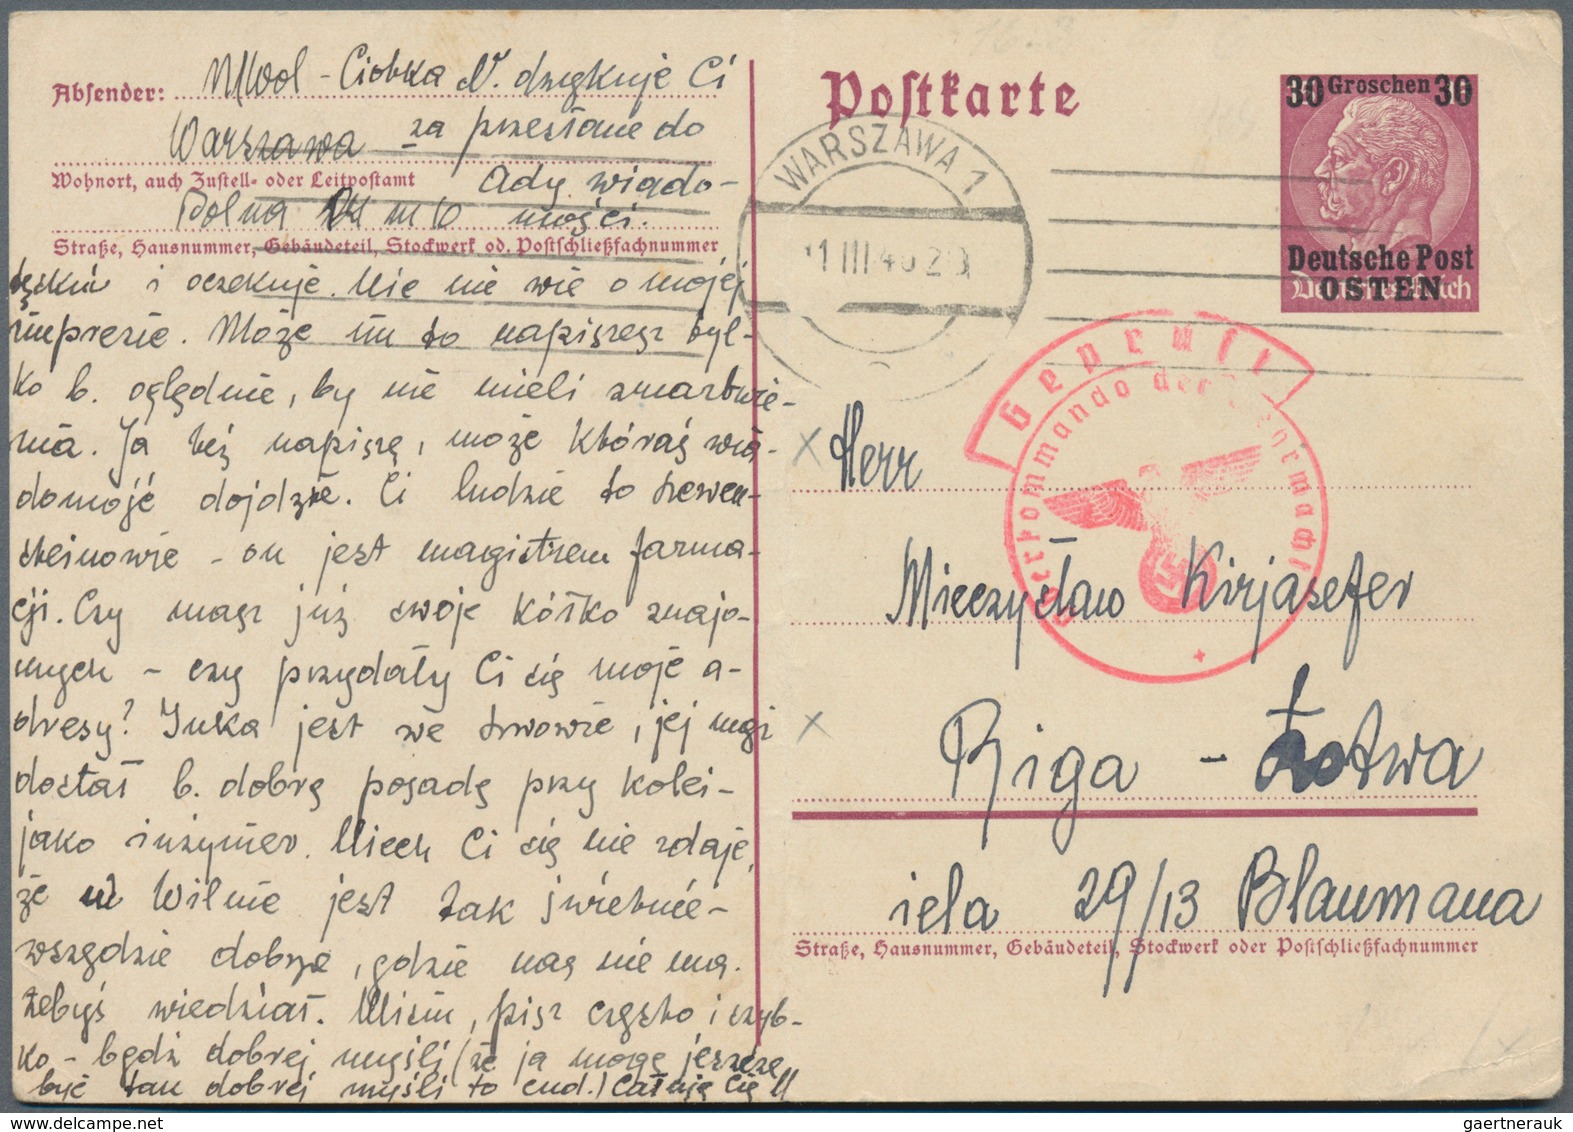 Absender: M Wol - Ciotka N. dziękuje Ci
Warszawa za przesłane do
Wohnort, auch Zustell- oder Leitpostamt Ady wiado-
Dolna m 10 mości.
Straße, Hausnummer, Gebäudeteil, Stockwerk od. Postschließfachnummer
i oczekuje. Nie nie wie o mojej
imprezie. Może im to napiszesz tyl-
ko b. oględnie, by nie mieli zmartwie-
nia. Ja też napiszę, może któraś wia-
domość dojdzie. Ci ludzie to Lewen-
steinowie - on jest magistrem farma-
cji. Czy masz już swoje kółko znajo-
mych - czy przydały Ci się moje a-
dresy? Inka jest we Lwowie, jej mąż
dostał b. dobrą posadę przy kolei -
jako inżynier. Niech Ci się nie zdaje,
że w Wilnie jest tak świetnie -
wszędzie dobrze, gdzie nas nie ma.
Żebyś wiedział. Misiu, pisz często i szyb-
ko - bądź dobrej myśli (że ja mogę jeszcze
być tak dobrej myśli to cud.) Całuję Cię M
Postkarte
30 Groschen 30
Deutsche Post
OSTEN
Deutsches Reich
WARSZAWA 1
Geprüft
Oberkommando der Wehrmacht
Herr
Mieczysław Kirjasefer
Riga - Łotwa
iela 29/13 Blaumana
Straße, Hausnummer, Gebäudeteil, Stockwerk oder Postschließfachnummer
gaertnerauk